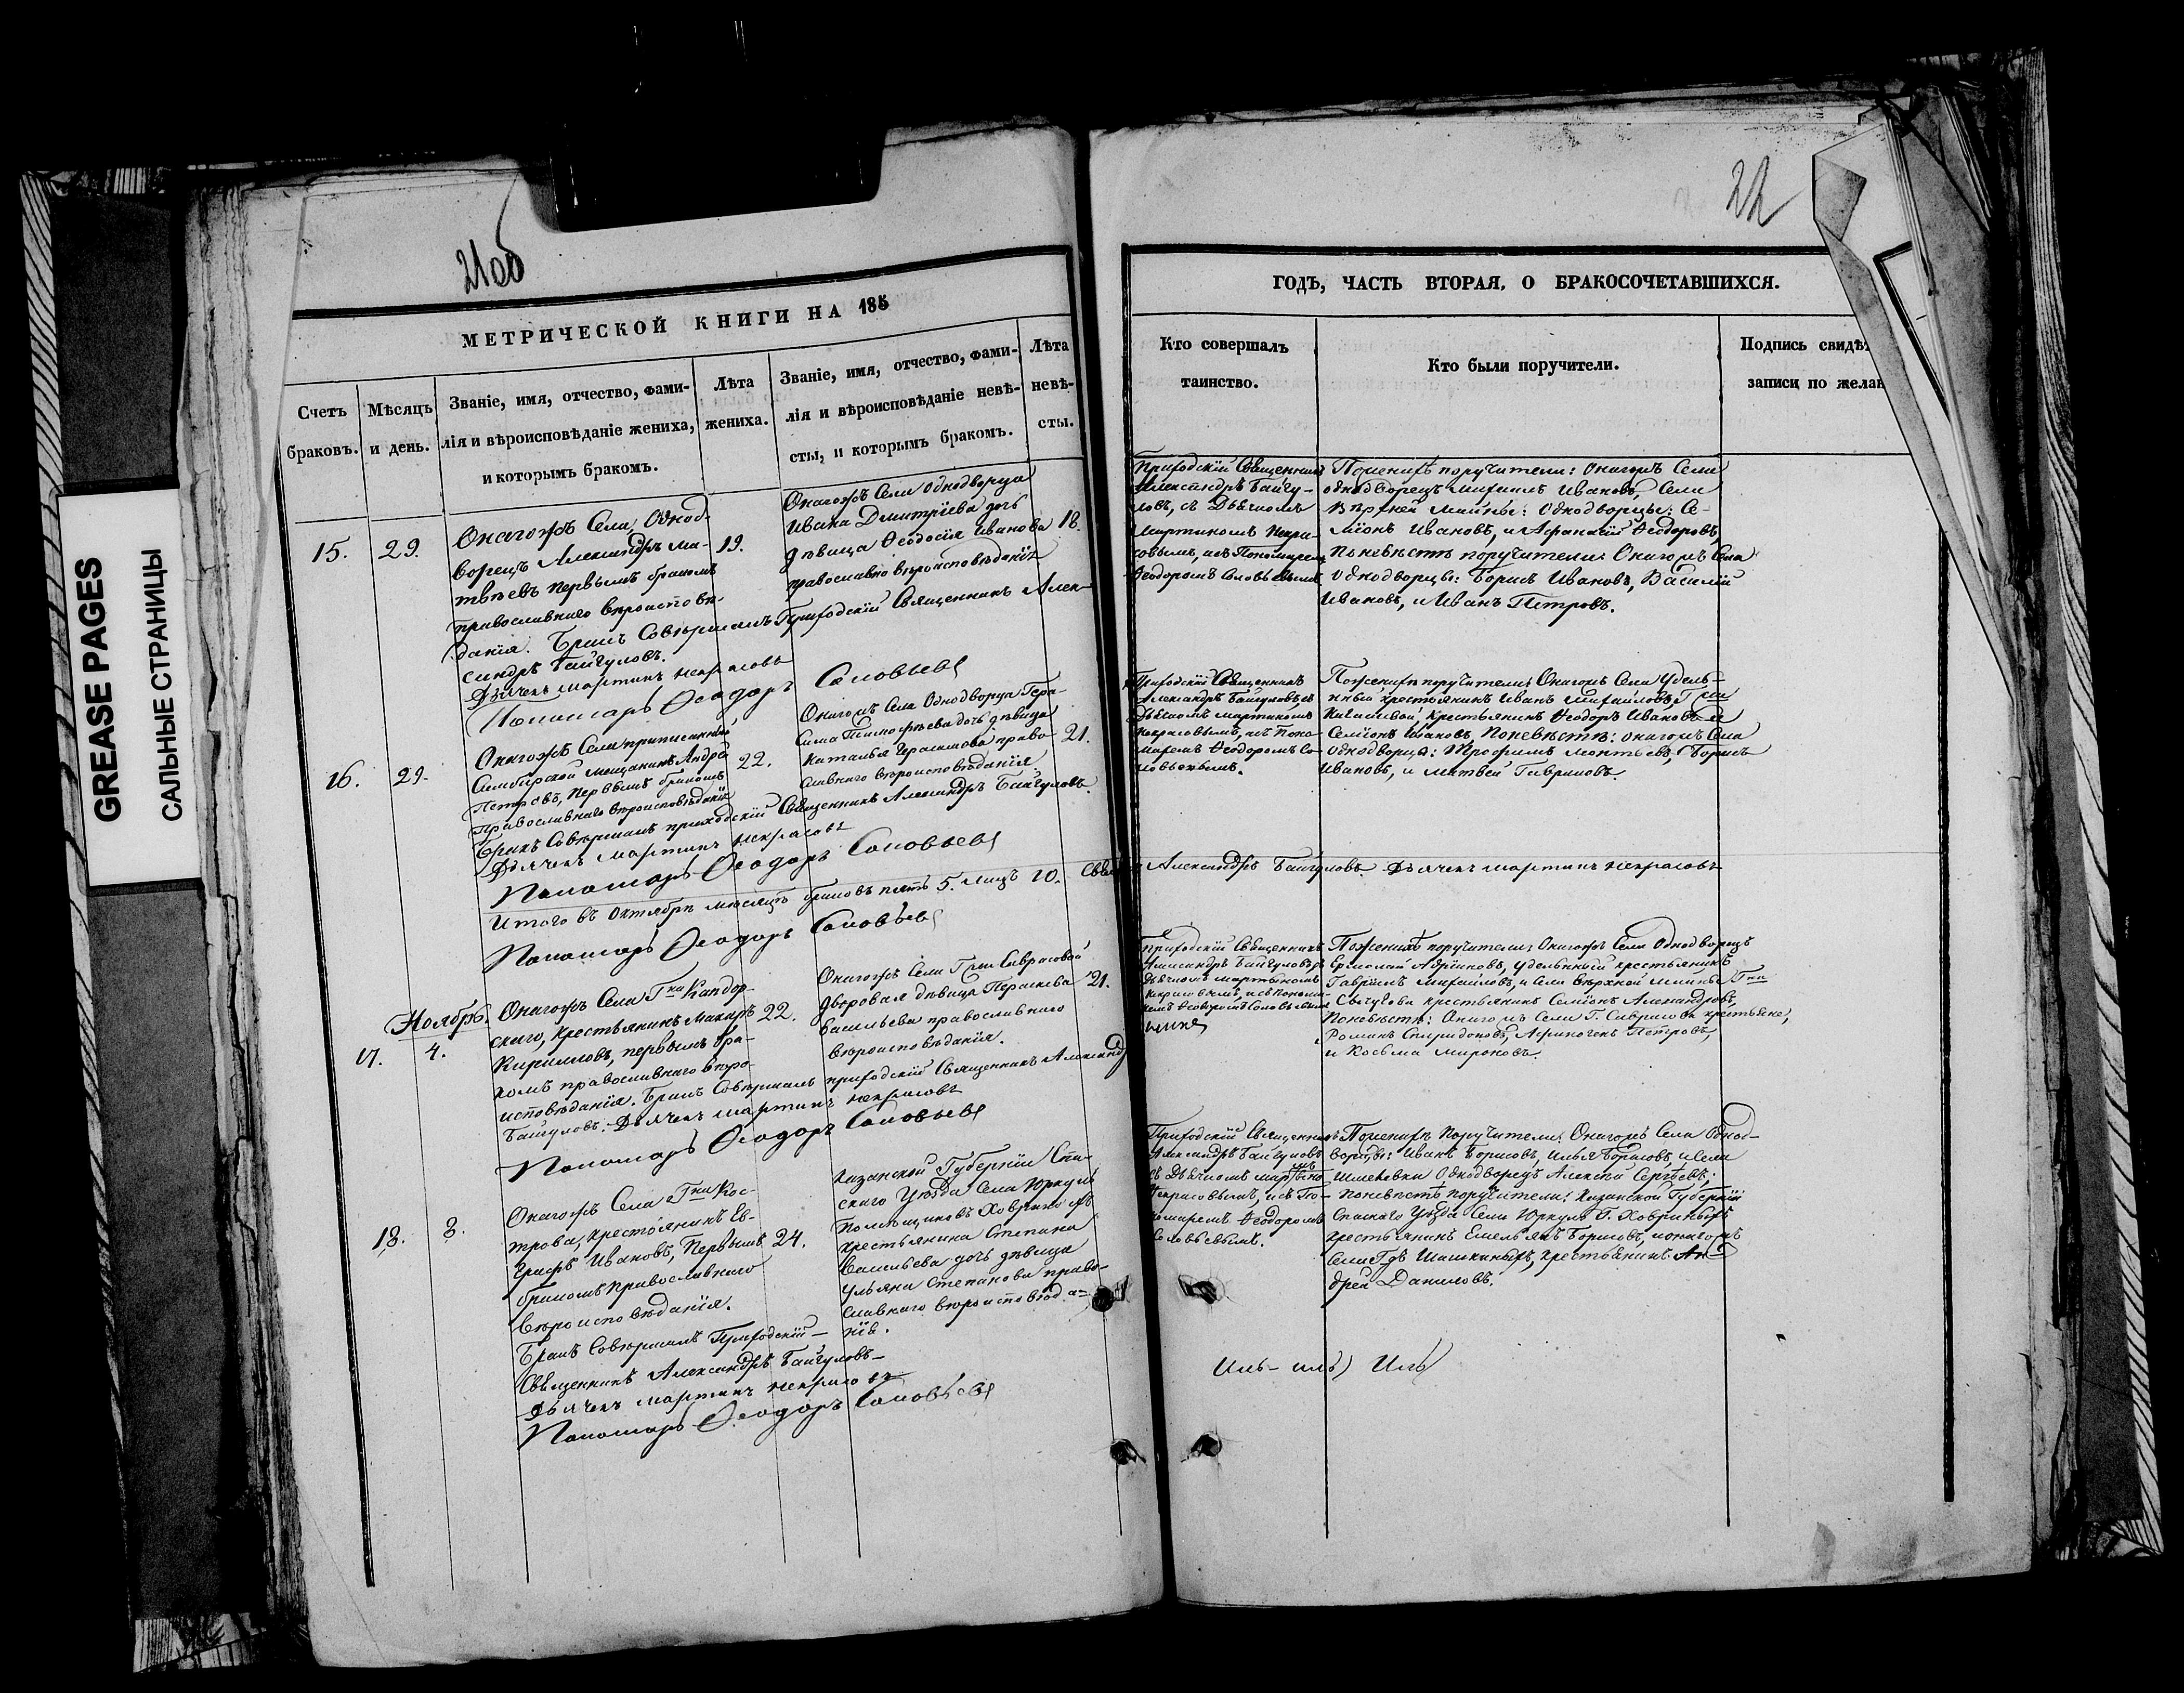 GREASE PAGES
САЛЬНЫЕ СТРАНИЦЫ
21об
МЕТРИЧЕСКОЙ КНИГИ НА 185
Счетъ браковъ.
Мѣсяцъ и день.
Званіе, имя, отчество, фами-
лія и вѣроисповѣданіе жениха,
и которымъ бракомъ.
Лѣта
жениха.
Званіе, имя, отчество, фами-
лія и вѣроисповѣданіе невѣ-
сты, и которымъ бракомъ.
Лѣта
невѣ-
сты.
15.
29.
Онагожъ Села Однод-
ворецъ Александръ Ма-
твѣевъ первымъ бракомъ
православнаго вѣроисповѣ-
данія. Бракъ Совершалъ Приходскій Священникъ Алек-
сандръ Байгуловъ.
Дьячекъ Мартинъ Некрасовъ
Пономарь Ѳеодоръ Соловьевъ
19.
Онагожъ Села Однодворца
Ивана Дмитріева дочь
дѣвица Ѳеодосія Иванова
православнаго вѣроисповѣданія
18.
16.
29.
Онагожъ Села приписанный
Симбирской мещанинъ Андрей
Петровъ, первымъ бракомъ
Православнаго вѣроисповѣданія
Бракъ Совершалъ приходскій Священникъ Александръ Байгуловъ.
Дьячекъ Мартинъ Некрасовъ
Пономарь Ѳеодоръ Соловьевъ
22.
Онагожъ Села Однодворца Гера-
сима Тимофѣева дочь дѣвица
Наталья Герасимова право-
славнаго вѣроисповѣданія
21.
Итого въ Октябрѣ мѣсяцѣ браковъ пять 5. лицъ 10.
Пономарь Ѳеодоръ Соловьевъ
Ноябрь.
17.
4.
Онагожъ Села Гна Кандор-
скаго, крестьянинъ Макаръ
Кириловъ, первымъ бра-
комъ православнаго вѣро-
исповѣданія. Бракъ Совершалъ приходскій Священникъ Александръ
Байгуловъ. Дьячекъ Мартинъ Некрасовъ
Пономарь Ѳеодоръ Соловьевъ
22.
Онагожъ Села Гжи Саврасовой
дворовая дѣвица Параскева
Васильева православнаго
вѣроисповѣданія.
21.
18.
8.
Онагожъ Села Гна Кос-
трова, крестьянинъ Ев-
графъ Ивановъ, Первымъ
бракомъ православнаго
вѣроисповѣданія.
Бракъ Совершалъ Приходскій
Священникъ Александръ Байгуловъ
Дьячекъ Мартинъ Некрасовъ
Пономарь Ѳеодоръ Соловьевъ
24.
Казанской Губерніи Спа-
скаго Уѣзда Села Юркуль
Помѣщиковъ Ховриныхъ
крестьянина Степана
Васильева дочь дѣвица
Ульяна Степанова право-
славнаго вѣроисповѣда-
нія.
22
ГОДЪ, ЧАСТЬ ВТОРАЯ, О БРАКОСОЧЕТАВШИХСЯ.
Кто совершалъ
таинство.
Кто были поручители.
Подпись свидѣ
записи по желан
Приходскій Священникъ
Александръ Байгу-
ловъ, съ Дьячкомъ
Мартиномъ Некра-
совымъ, и съ Пономаремъ
Ѳеодоромъ Соловьевымъ
По женихѣ поручители: Онагожъ Села
однодворецъ Михаилъ Ивановъ, Села
Верхней Майны: Однодворцы: Се-
міонъ Ивановъ, и Афанасій Ѳеодоровъ,
По невѣстѣ поручители: Онагожъ Села
однодворцы: Борисъ Ивановъ, Василій
Ивановъ, и Иванъ Петровъ.
Приходскій Священникъ
Александръ Байгуловъ, съ
Дьячкомъ Мартиномъ
Некрасовымъ, и съ Поно-
маремъ Ѳеодоромъ Со-
ловьевымъ.
По женихѣ поручители: Онагожъ Села Удель-
ный крестьянинъ Иванъ Михайловъ, Гжи
крестьянинъ Ѳеодоръ Ивановъ и
Семіонъ Ивановъ, По невѣстѣ: онагожъ Села
Однодворцы: Трофимъ Леонтьевъ, Борисъ
Ивановъ, и Матвей Гавриловъ.
Александръ Байгуловъ. Дьячекъ Мартинъ Некрасовъ
Приходскій Священникъ
Александръ Байгуловъ съ
Дьячкомъ Мартыномъ
Некрасовымъ, и съ Понома-
ремъ Ѳеодоромъ Соловьевымъ
По женихѣ поручители: Онагожъ Села Однодворецъ
Ермолай Адріановъ, удельный крестьянинъ
Гавріилъ Михайловъ, и Села Верхней Майны Гна
Сычугова крестьянинъ Семіонъ Александровъ,
По невѣстѣ: Онагожъ Села Г. Саврасова крестьяне,
Романъ Спиридоновъ, Афиногенъ Петровъ,
и Косьма Мироновъ.
Приходскій Священникъ
Александръ Байгуловъ
съ Дьячкомъ Мартыно
мъ
Некрасовымъ, и съ По-
номаремъ Ѳеодоромъ
Соловьевымъ.
По женихѣ Поручители: Онагожъ Села Однод-
ворцы: Иванъ Борисовъ, Илья Борисовъ, и Села
Шмелевки Однодворецъ Алексѣй Сергѣевъ;
По невѣстѣ поручители: Казанской Губерніи
Спаскаго Уѣзда Села Юркуль Г. Ховриныхъ
крестьянинъ Емельянъ Борисовъ, и онагожъ
Села Гдъ Шишкиныхъ, крестьянинъ Ан-
дрей Даниловъ.